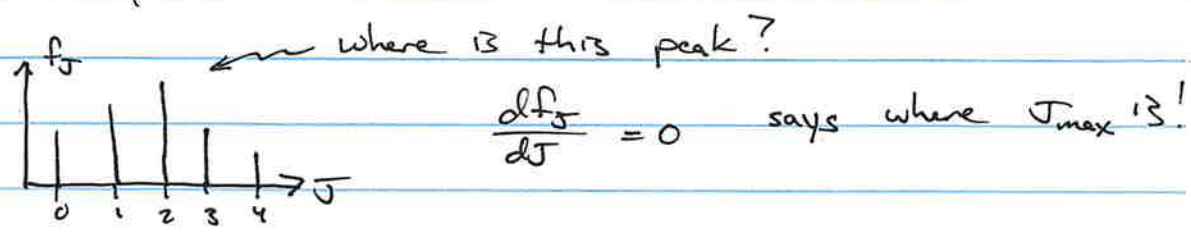 f_J
where is this peak?
df_J/dJ = 0 says where J_max is!
J
0 1 2 3 4